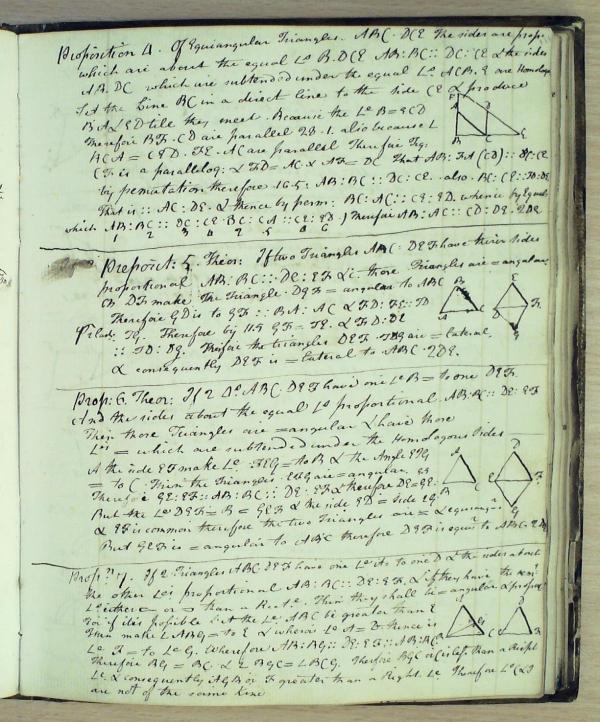 Proposition 4. Of Equiangular Triangles. ABC. DCE The sides are propo.
which are about the equal Ls B. DCE AB: BC:: DC: CE & the sides
AB. DC which are subtended under the equal Ls ACB. E are Homolog.
Set the Line BC in a direct line to the side CE & produce
BA & ED till they meet. Because the Le B = ECD
Therefore BF. CD are parallel 28. 1. also because L
ACA = CED. FE. AC are parallel Therefore Fig.
CF is a parallelog: & FD = AC & AF = DC That AB: FA (CD):: BC: CE
by permutation therefore 16.5: AB: BC:: DC: CE. also. BC: CE: FD: DE
That is:: AC: DE. & thence by perm: BC: AC:: CE: ED. whence by Equal
which AB: BC:: DC: CE BC: CA:: CE: ED.) Therefore AB: AC:: CD: DE. 2DE
1 2 3 4 2 5 6
Proposit: 5. Theor: If two Triangles ABC. DEF have their sides
proportional AB: BC:: DE: EF &c. those Triangles are = angular
On DF make the Triangle. DGF = angular to ABC
Therefore GD is to GF:: BA: AC & FD: FE:: TD
FG. Therefore by 11.5 GF = FE. & FD: DE
:: FD: DG. Therefore the triangles DEF. are = lateral,
& consequently DEF is = lateral to ABC. 2DE.
Prop: 6. Theor: If 2 Ds ABC. DEF have one Le B = to one DEF.
And the sides about the equal Ls proportional. AB: BC:: DE: EF
Then those Triangles are = angular & have those
Les = which are subtended under the Homologous Sides
At the side EF make Le FEG = to B & the Angle EFG
= to C. Then the Triangles. are = angular.
Therefore GE: EF:: AB: BC:: DE: EF & therefore DE = GE.
But the Le DEF = B = GEF & the side ED = side EG.
& EF is common therefore the two Triangles are = & equiangr
But GEF is = angular to ABC therefore DEF is equir to ABC. 2DE
Prop: 7. If 2 Triangles ABC DEF have one Le A = to one D & the sides about
the other Les proportional AB: BC:: DE: EF, & if they have the rem.
Les either = or than a Rect e. Then they shall be = angular & proport
For if it is possible let the Le. ABC be greater than E
Then make LABG = to E & whereas Le A = D. thence is
Le F = to Le G. Wherefore AB: BG:: DE: EF:: AB: BC
Therefore BG = BC & L BGC = LBCG. Therefore BGC or C is less than a Right
Le & consequently AGB or F greater than a Right Le. Therefore Le C & F
are not of the same kind